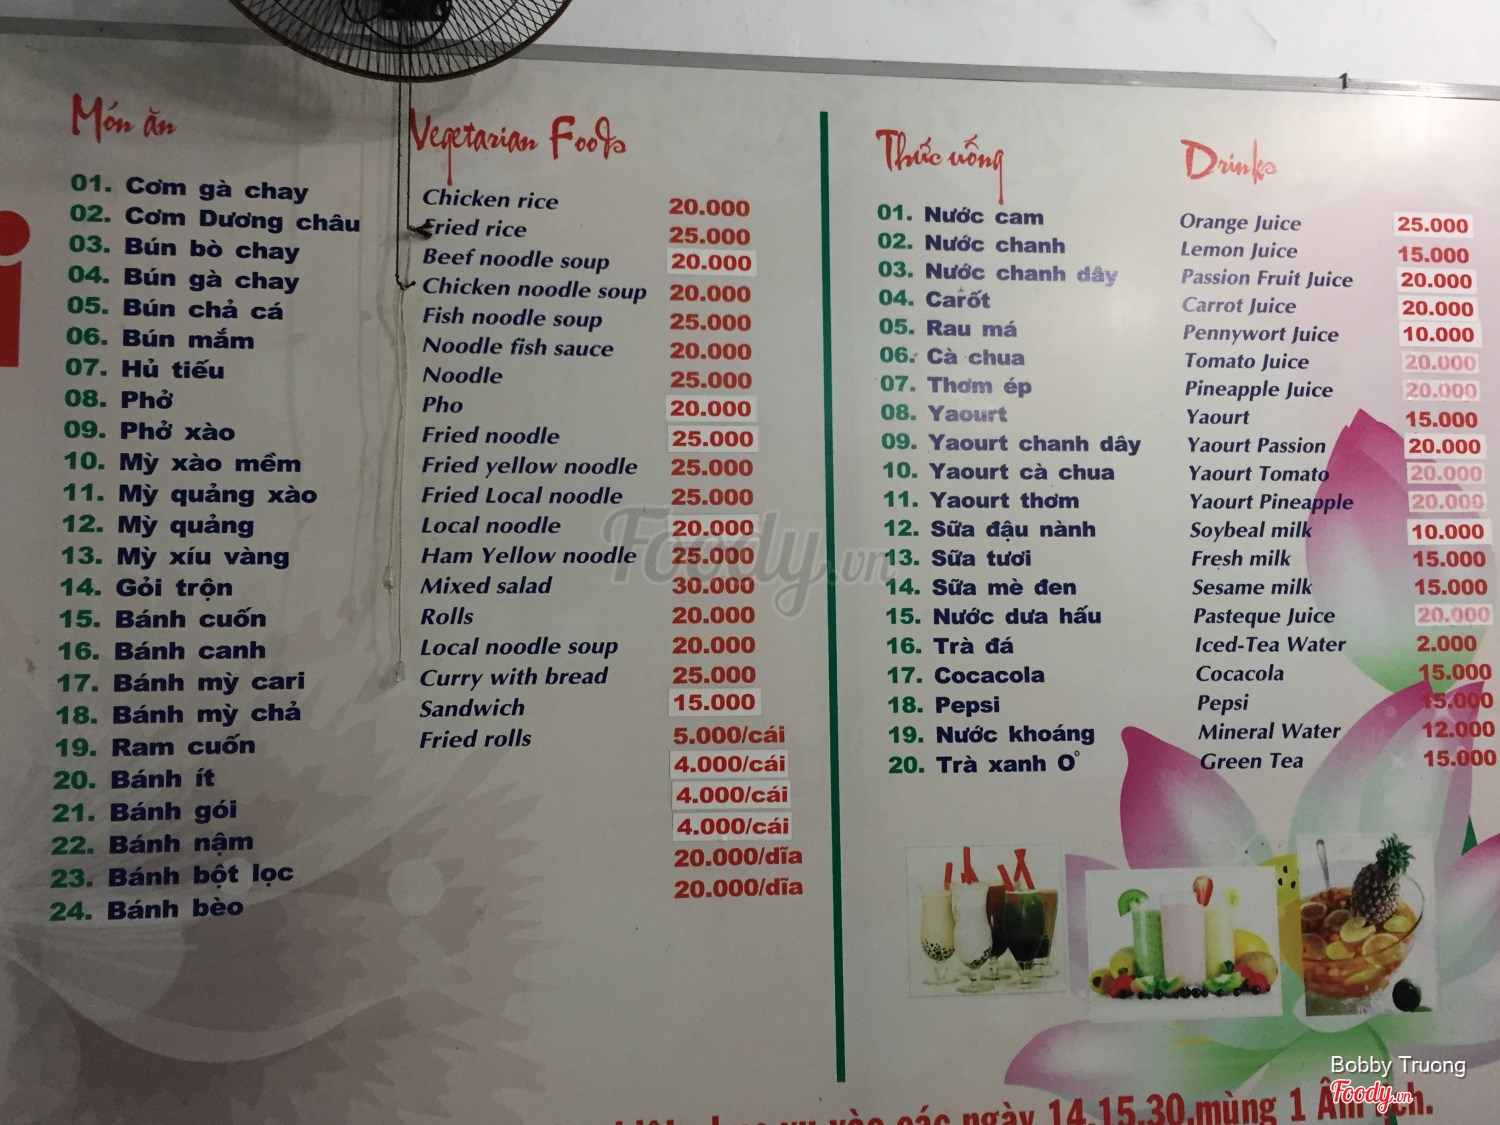 Món ăn
Vegetarian Foods
01. Cơm gà chay Chicken rice 20.000
02. Cơm Dương châu Fried rice 25.000
03. Bún bò chay Beef noodle soup 20.000
04. Bún gà chay Chicken noodle soup 20.000
05. Bún chả cá Fish noodle soup 25.000
06. Bún mắm Noodle fish sauce 20.000
07. Hủ tiếu Noodle 25.000
08. Phở Pho 20.000
09. Phở xào Fried noodle 25.000
10. Mỳ xào mềm Fried yellow noodle 25.000
11. Mỳ quảng xào Fried Local noodle 25.000
12. Mỳ quảng Local noodle 20.000
13. Mỳ xíu vàng Ham Yellow noodle 25.000
14. Gỏi trộn Mixed salad 30.000
15. Bánh cuốn Rolls 20.000
16. Bánh canh Local noodle soup 20.000
17. Bánh mỳ cari Curry with bread 25.000
18. Bánh mỳ chả Sandwich 15.000
19. Ram cuốn Fried rolls 5.000/cái
20. Bánh ít 4.000/cái
21. Bánh gói 4.000/cái
22. Bánh nậm 4.000/cái
23. Bánh bột lọc 20.000/dĩa
24. Bánh bèo 20.000/dĩa
Thức uống
Drinks
01. Nước cam Orange Juice 25.000
02. Nước chanh Lemon Juice 15.000
03. Nước chanh dây Passion Fruit Juice 20.000
04. Carốt Carrot Juice 20.000
05. Rau má Pennywort Juice 10.000
06. Cà chua Tomato Juice 20.000
07. Thơm ép Pineapple Juice 20.000
08. Yaourt Yaourt 15.000
09. Yaourt chanh dây Yaourt Passion 20.000
10. Yaourt cà chua Yaourt Tomato 20.000
11. Yaourt thơm Yaourt Pineapple 20.000
12. Sữa đậu nành Soybeal milk 10.000
13. Sữa tươi Fresh milk 15.000
14. Sữa mè đen Sesame milk 15.000
15. Nước dưa hấu Pasteque Juice 20.000
16. Trà đá Iced-Tea Water 2.000
17. Cocacola Cocacola 15.000
18. Pepsi Pepsi 15.000
19. Nước khoáng Mineral Water 12.000
20. Trà xanh O° Green Tea 15.000
Foody.vn
Bobby Truong
Foody.vn
vào các ngày 14,15,30,mùng 1 Âm lịch.